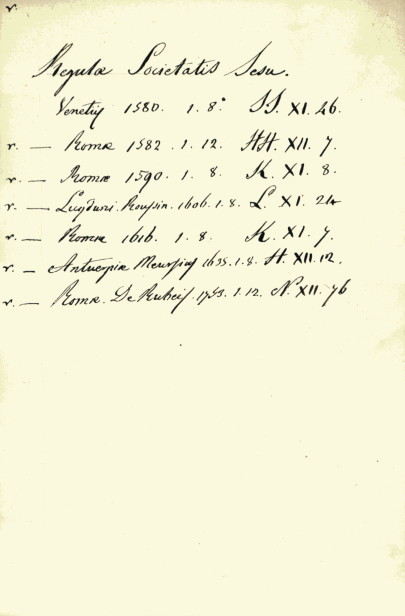 r.
Regulæ Societatis Jesu.
Venetijs 1580. 1. 8° SS. XI. 26.
r. — Romæ 1582. 1. 12. HH. XII. 7.
r. — Romæ 1590. 1. 8. K. XI. 8.
r. — Lugduni. Roussin. 1606. 1. 8. L. XI. 24
r. — Romæ 1616. 1. 8. K. XI. 7.
r. — Antverpiæ Meursius 1635. 1. 8. H. XII. 12.
r. — Romæ. De Rubeis. 1753. 1. 12. N. XII. 76